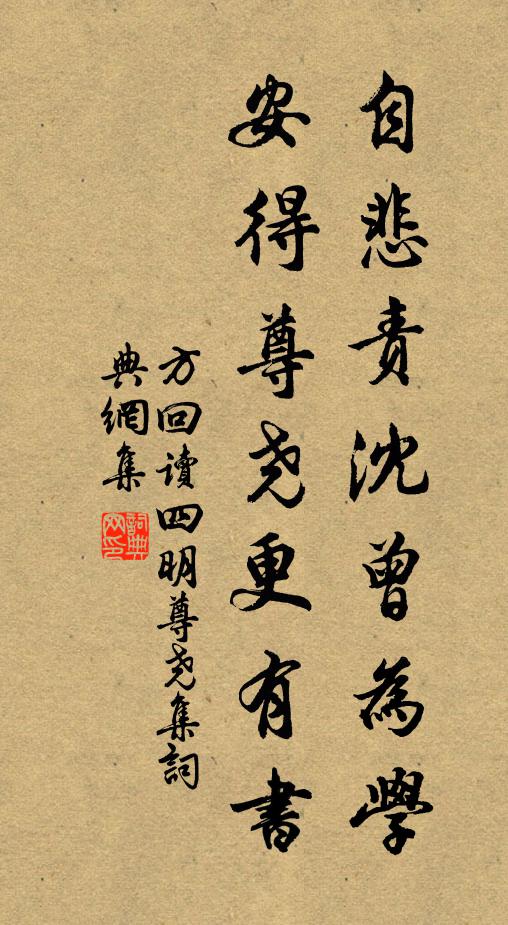 自悲責沈曾為學
安得尊尧更有書
方回讀四明尊尧集詞
典網集
詞典網印